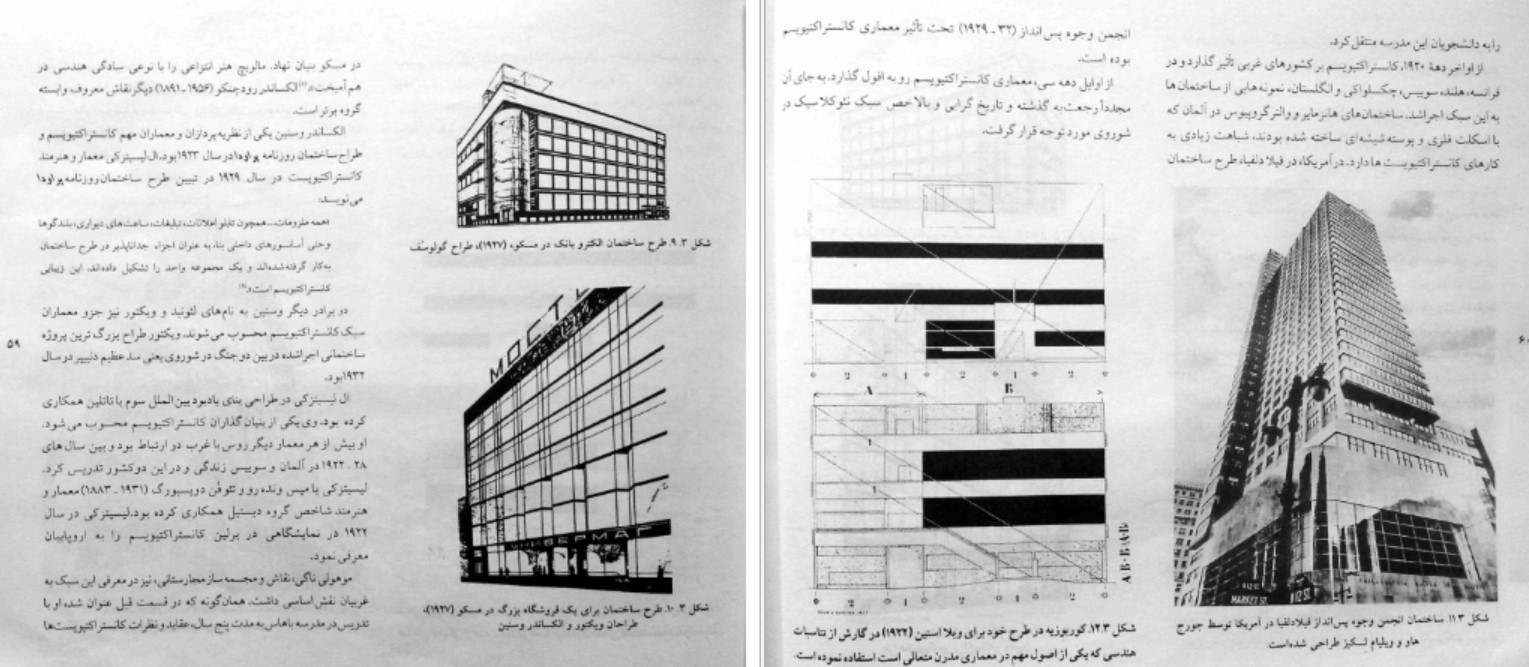 در مسکو بنیان نهاد. مالویچ هنر انتزاعی را با نوعی سادگی هندسی در
هم آمیخت.» الکساندر رودچنکو (۱۹۵۶ ـ ۱۸۹۱) دیگر نقاش معروف وابسته
گروه برتر است.
الکساندر وسنین یکی از نظریه پردازان و معماران مهم کانستراکتیویسم و
طراح ساختمان روزنامه پراودا در سال ۱۹۲۳ بود. ال لیسیتزکی معمار و هنرمند
کانستراکتیویست در سال ۱۹۲۹ در تبیین طرح ساختمان روزنامه پراودا
می نویسد:
«همه ملزومات... همچون تابلو اعلانات، تبلیغات، ساعت های دیواری، بلندگوها
وحتی آسانسورهای داخلی بنا، به عنوان اجزاء جداناپذیر در طرح ساختمان
به کار گرفته شده اند و یک مجموعه واحد را تشکیل داده اند. این زیبایی
کانستراکتیویسم است».
دو برادر دیگر وسنین به نام های لئونید و ویکتور نیز جزو معماران
سبک کانستراکتیویسم محسوب می شوند. ویکتور طراح بزرگ ترین پروژه
ساختمانی اجرا شده در بین دو جنگ در شوروی یعنی سد عظیم دنیپر در سال
۱۹۳۲ بود.
ال لیسیتزکی در طراحی بنای یادبود بین الملل سوم با تاتلین همکاری
کرده بود. وی یکی از بنیان گذاران کانستراکتیویسم محسوب می شود.
او بیش از هر معمار دیگر روس با غرب در ارتباط بود و بین سال های
۲۸ ـ ۱۹۲۲ در آلمان و سوییس زندگی و در این دو کشور تدریس کرد.
لیسیتزکی با میس ونده رو و تئو فُن دویسبورگ (۱۹۳۱ ـ ۱۸۸۳) معمار و
هنرمند شاخص گروه دیستیل همکاری کرده بود. لیسیتزکی در سال
۱۹۲۲ در نمایشگاهی در برلین کانستراکتیویسم را به اروپاییان
معرفی نمود.
موهولی ناگی، نقاش و مجسمه ساز مجارستانی، نیز در معرفی این سبک به
غربیان نقش اساسی داشت. همان گونه که در قسمت قبل عنوان شد، او با
تدریس در مدرسه باهاس به مدت پنج سال، عقاید و نظرات کانستراکتیویست ها
۵۹
شکل ۹.۳. طرح ساختمان الکترو بانک در مسکو، (۱۹۲۷)، طراح گولوسُف
МОСТ
УНИВЕРМАГ
شکل ۱۰.۳. طرح ساختمان برای یک فروشگاه بزرگ در مسکو (۱۹۲۷)،
طراحان ویکتور و الکساندر وسنین
را به دانشجویان این مدرسه منتقل کرد.
از اواخر دههٔ ۱۹۲۰، کانستراکتیویسم بر کشورهای غربی تأثیر گذارد و در
فرانسه، هلند، سوییس، چکسلواکی و انگلستان، نمونه هایی از ساختمان ها
به این سبک اجرا شد. ساختمان های هانزمایر و والتر گروپیوس در آلمان که
با اسکلت فلزی و پوسته شیشه ای ساخته شده بودند، شباهت زیادی به
کارهای کانستراکتیویست ها دارد. در آمریکا، در فیلادلفیا، طرح ساختمان
انجمن وجوه پس انداز (۳۲ ـ ۱۹۲۹) تحت تأثیر معماری کانستراکتیویسم
بوده است.
از اوایل دهه سی، معماری کانستراکتیویسم رو به افول گذارد. به جای آن
مجدداً رجعت به گذشته و تاریخ گرایی و بالاخص سبک نئوکلاسیک در
شوروی مورد توجه قرار گرفت.
2 1 2 1 2
A B
2 1 2 1 2
A:B=B:(A+B)
MARKET ST
N 12 ST
شکل ۱۱.۳. ساختمان انجمن وجوه پس انداز فیلادلفیا در آمریکا توسط جورج
هاو و ویلیام لسکیز طراحی شده است.
شکل ۱۲.۳. کوربوزیه در طرح خود برای ویلا استین (۱۹۲۲) در گارش از تناسبات
هندسی که یکی از اصول مهم در معماری مدرن متعالی است استفاده نموده است.